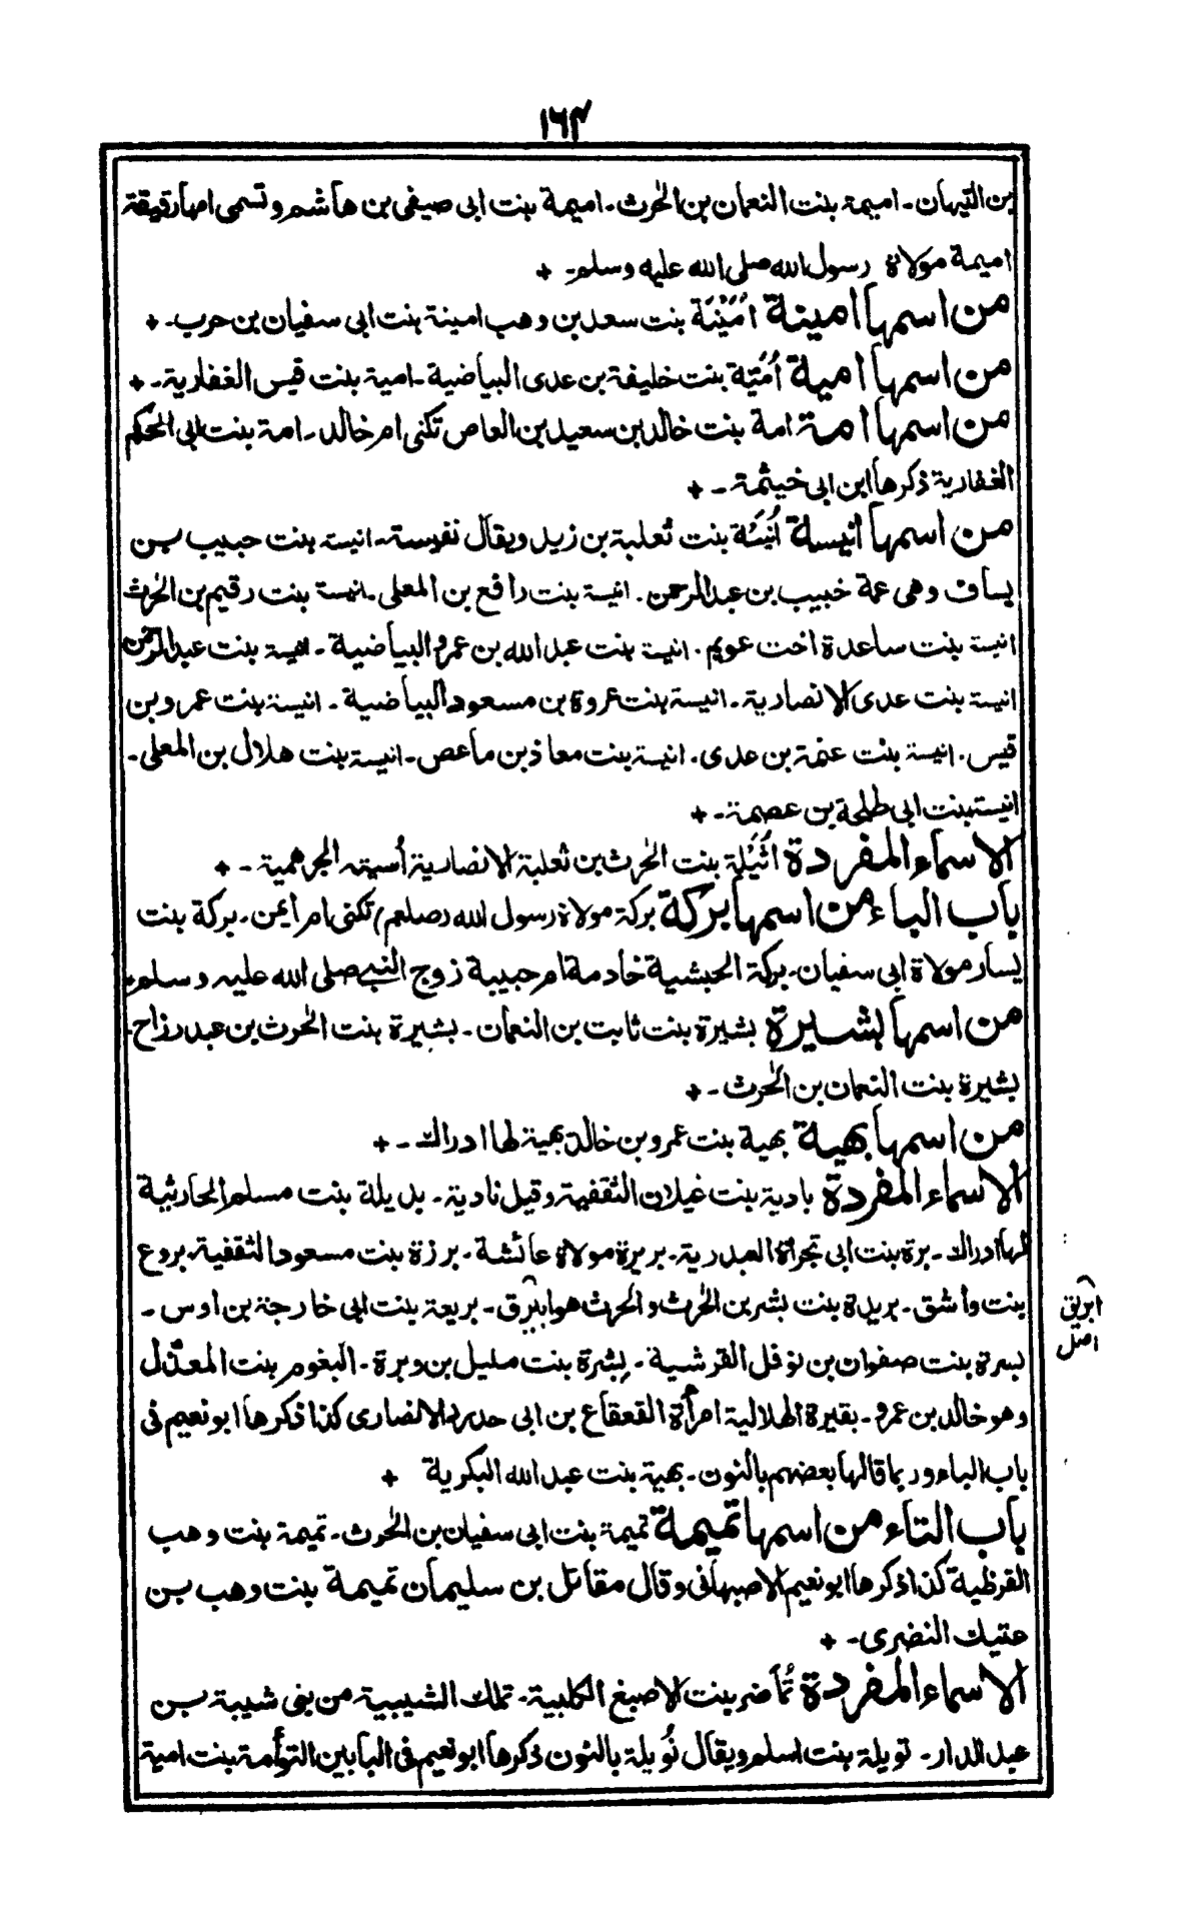 ١٦٣
بن التيهان۔ اميمة بنت النعمان بن الحٰرث۔ اميمة بنت ابى صيفى بن هاشم وتسمى امها رقيقة
اميمة مولاة رسول الله صلى الله عليه وسلم۔ +
من اسمها امينة اُمَيْنَة بنت سعد بن وهب امينة بنت ابى سفيان بن حرب۔ +
من اسمها امية اُمَيّة بنت خليفة بن عدى البياضية۔ امية بنت قيس الغفارية۔ +
من اسمها امة امة بنت خالد بن سعيد بن العاص تكنى ام خالد۔ امة بنت ابى الحكم
الغفارية ذكرها ابن ابى خيثمة۔ +
من اسمها انيسة اُنَيْسَة بنت ثعلبة بن زيد ويقال نفيسة۔ انيسة بنت حبيب بن
يساف وهى عمة خبيب بن عبد الرحمن. انيسة بنت رافع بن المعلى۔ انيسة بنت رقيم بن الحٰرث
انيسة بنت ساعدة اخت عويم. انيسة بنت عبد الله بن عمرو البياضية۔ انيسة بنت عبد الرحمن
انيسة بنت عدى الانصارية۔ انيسة بنت عروة بن مسعود البياضية۔ انيسة بنت عمرو بن
قيس. انيسة بنت عنمة بن عدى. انيسة بنت معاذ بن ماعص۔ انيسة بنت هلال بن المعلى۔
انيسة بنت ابى طلحة بن عصمة۔ +
الاسماء المفردة اُثَيْلة بنت الحٰرث بن ثعلبة الانصارية اُسية الجرهمية۔ +
باب الباء من اسمها بركة بركة مولاة رسول الله (صلعم) تكنى ام ايمن۔ بركة بنت
يسار مولاة ابى سفيان۔ بركة الحبشية خادمة ام حبيبة زوج النبى صلى الله عليه وسلم۔
من اسمها بشيرة بشيرة بنت ثابت بن النعمان۔ بشيرة بنت الحٰرث بن عبد رزاح۔
بشيرة بنت النعمان بن الحٰرث۔ +
من اسمها بهية بهية بنت عمرو بن خالد بهية لها ادراك۔ +
الاسماء المفردة بادية بنت غيلان الثقفية وقيل نادية۔ بديلة بنت مسلم الحارثية
لها ادراك۔ برة بنت ابى تجراة العبدرية۔ بريرة مولاة عائشة۔ برزة بنت مسعود الثقفية۔ بروع
بنت واشق۔ بريدة بنت بشر بن الحٰرث والحرث هو ابيرق۔ بريعة بنت ابى خارجة بن اوس۔
ابريق
اصل
بسرة بنت صفوان بن نوفل القرشية۔ بشرة بنت مليل بن وبرة۔ البغوم بنت المعذّل
وهو خالد بن عمرو۔ بقيرة الهلالية امرأة القعقاع بن ابى حدرد الانصارى كذا ذكرها ابو نعيم فى
باب الباء وربما قالها بعضهم بالنون۔ بهية بنت عبد الله البكرية +
باب التاء من اسمها تميمة تميمة بنت ابى سفيان بن الحٰرث۔ تميمة بنت وهب
القرظية كذا ذكرها ابو نعيم الاصبهانى وقال مقاتل بن سليمان تميمة بنت وهب بن
عتيك النضرى۔ +
الاسماء المفردة تُماضر بنت الاصبغ الكلبية۔ تملك الشيبية من بنى شيبة بن
عبد الدار۔ تويلة بنت اسلم ويقال نُويلة بالنون ذكرها ابو نعيم فى البابين التوأمة بنت امية